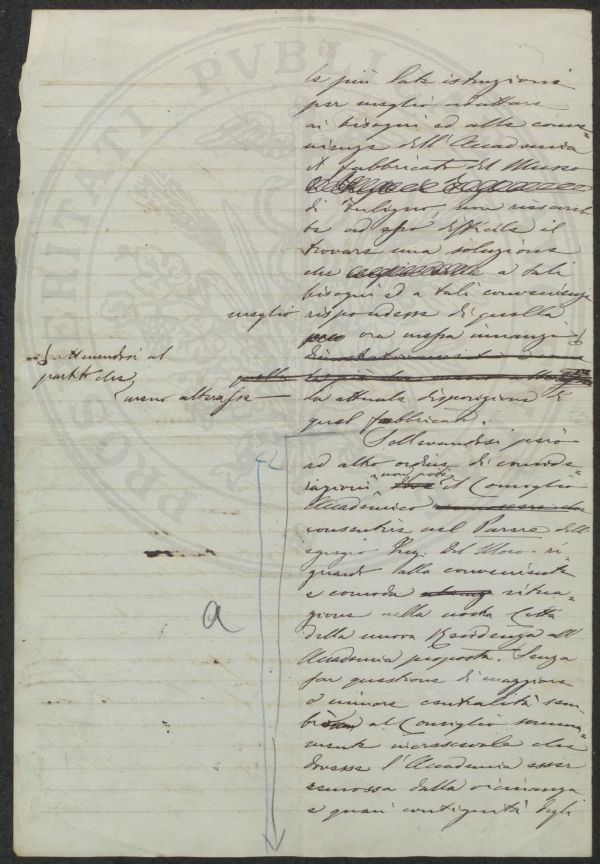 le più late istruzioni
per meglio adattare
ai bisogni ed alla conve=
nienza dell'Accademia
il fabbricato del Museo
di Fuligno, non riuscireb
be ad esso difficile il
trovare una soluzione
che a tali
bisogni e a tali convenienze
meglio rispondesse di quella
ora messa innanzi
attenendosi al
partito che
meno alterasse
quella
la attuale disposizione di
quel fabbricato.
Sollevandosi però
ad altro ordine di conside=
razioni non potè il Consiglio
Accademico
consentire nel Parere dell'
egregio Ing. Del Moro ri=
guardo alla conveniente
e comoda situa=
zione nella nostra Città
della nuova Residenza all'
Accademia proposta. Senza
far questione di maggiore
o minore centralità sem
brò al Consiglio somma=
mente increscevole che
dovesse l'Accademia esser
remossa dalla vicinanza
e quasi contiguità degli
a
PROSPERITATI PVBLICAE